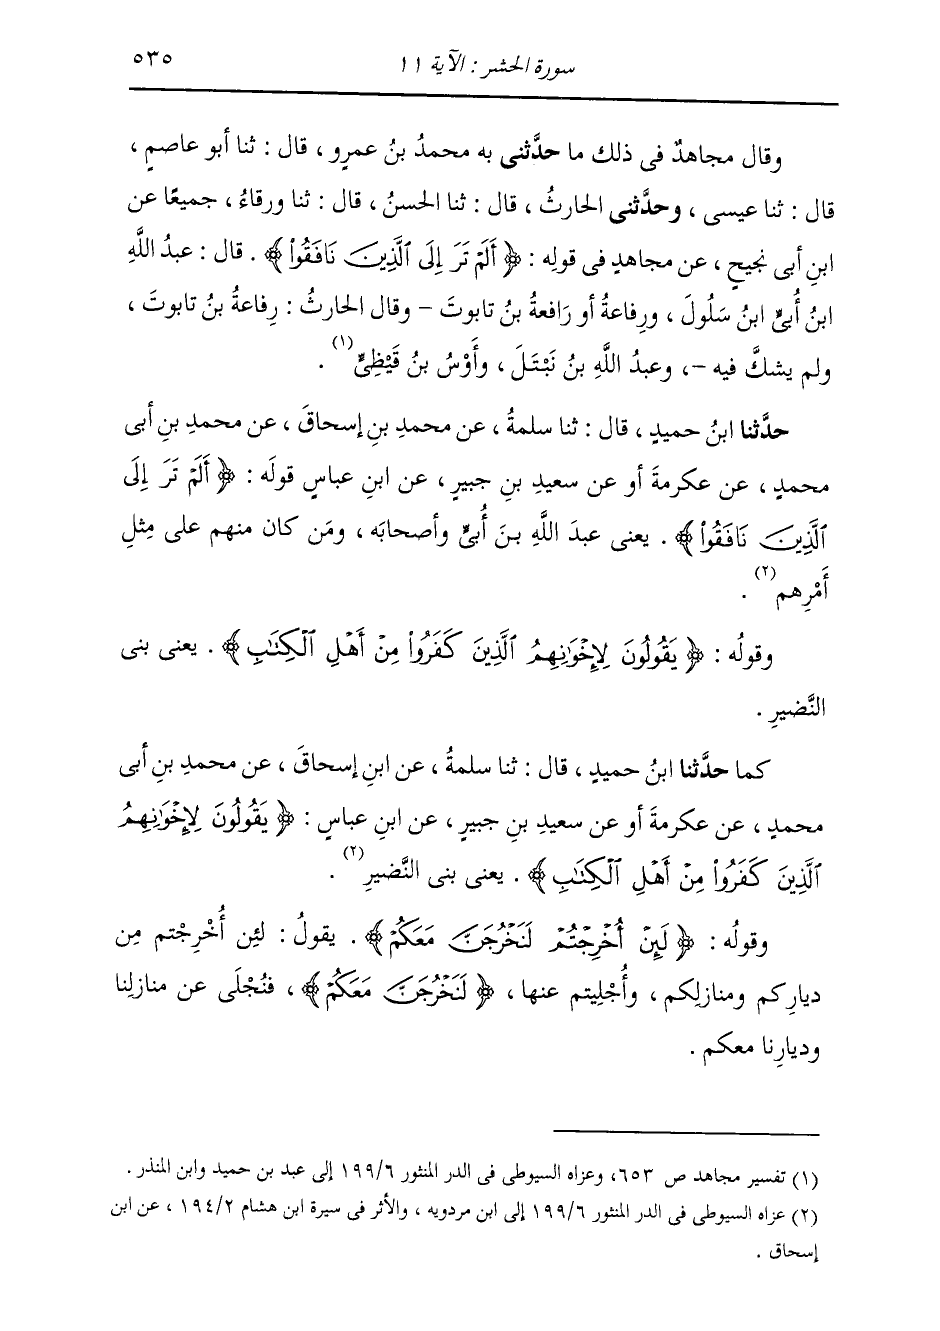 سورة الحشر : الآية ١١
٥٣٥
وقال مجاهدٌ فى ذلك ما حدَّثنى به محمدُ بنُ عمرٍو ، قال : ثنا أبو عاصمٍ ،
قال : ثنا عيسى ، وحدَّثنى الحارثُ ، قال : ثنا الحسنُ ، قال : ثنا ورقاءُ ، جميعًا عن
ابنِ أبى نجيحٍ ، عن مجاهدٍ فى قولِه : ﴿ أَلَمْ تَرَ إِلَى ٱلَّذِينَ نَافَقُوا۟ ﴾ . قال : عبدُ اللَّهِ
ابنُ أُبىٍّ ابنُ سَلُولَ ، ورِفاعةُ أو رَافعةُ بنُ تابوتَ – وقال الحارثُ : رِفاعةُ بنُ تابوتَ ،
ولم يشكَّ فيه –، وعبدُ اللَّهِ بنُ نَبْتَلَ ، وأَوْسُ بنُ قَيْظِىٍّ(١) .
حدَّثنا ابنُ حميدٍ ، قال : ثنا سلمةُ ، عن محمدِ بنِ إسحاقَ ، عن محمدِ بنِ أبى
محمدٍ ، عن عكرمةَ أو عن سعيدِ بنِ جبيرٍ ، عن ابنِ عباسٍ قولَه : ﴿ أَلَمْ تَرَ إِلَى
ٱلَّذِينَ نَافَقُوا۟ ﴾ . يعنى عبدَ اللَّهِ بنَ أُبىٍّ وأصحابَه ، ومَن كان منهم على مِثلِ
أَمْرِهم(٢) .
وقولُه : ﴿ يَقُولُونَ لِإِخْوَٰنِهِمُ ٱلَّذِينَ كَفَرُوا۟ مِنْ أَهْلِ ٱلْكِتَٰبِ ﴾ . يعنى بنى
النَّضيرِ .
كما حدَّثنا ابنُ حميدٍ ، قال : ثنا سلمةُ ، عن ابنِ إسحاقَ ، عن محمدِ بنِ أبى
محمدٍ ، عن عكرمةَ أو عن سعيدِ بنِ جبيرٍ ، عن ابنِ عباسٍ : ﴿ يَقُولُونَ لِإِخْوَٰنِهِمُ
ٱلَّذِينَ كَفَرُوا۟ مِنْ أَهْلِ ٱلْكِتَٰبِ ﴾ . يعنى بنى النَّضيرِ(٢) .
وقولُه : ﴿ لَئِنْ أُخْرِجْتُمْ لَنَخْرُجَنَّ مَعَكُمْ ﴾ . يقولُ : لئِن أُخْرِجْتم مِن
ديارِكم ومنازلِكم ، وأُجْلِيتم عنها ، ﴿ لَنَخْرُجَنَّ مَعَكُمْ ﴾ ، فنُجْلَى عن منازلِنا
وديارِنا معكم .
(١) تفسير مجاهد ص ٦٥٣، وعزاه السيوطى فى الدر المنثور ١٩٩/٦ إلى عبد بن حميد وابن المنذر .
(٢) عزاه السيوطى فى الدر المنثور ١٩٩/٦ إلى ابن مردويه ، والأثر فى سيرة ابن هشام ١٩٤/٢ ، عن ابن
إسحاق .